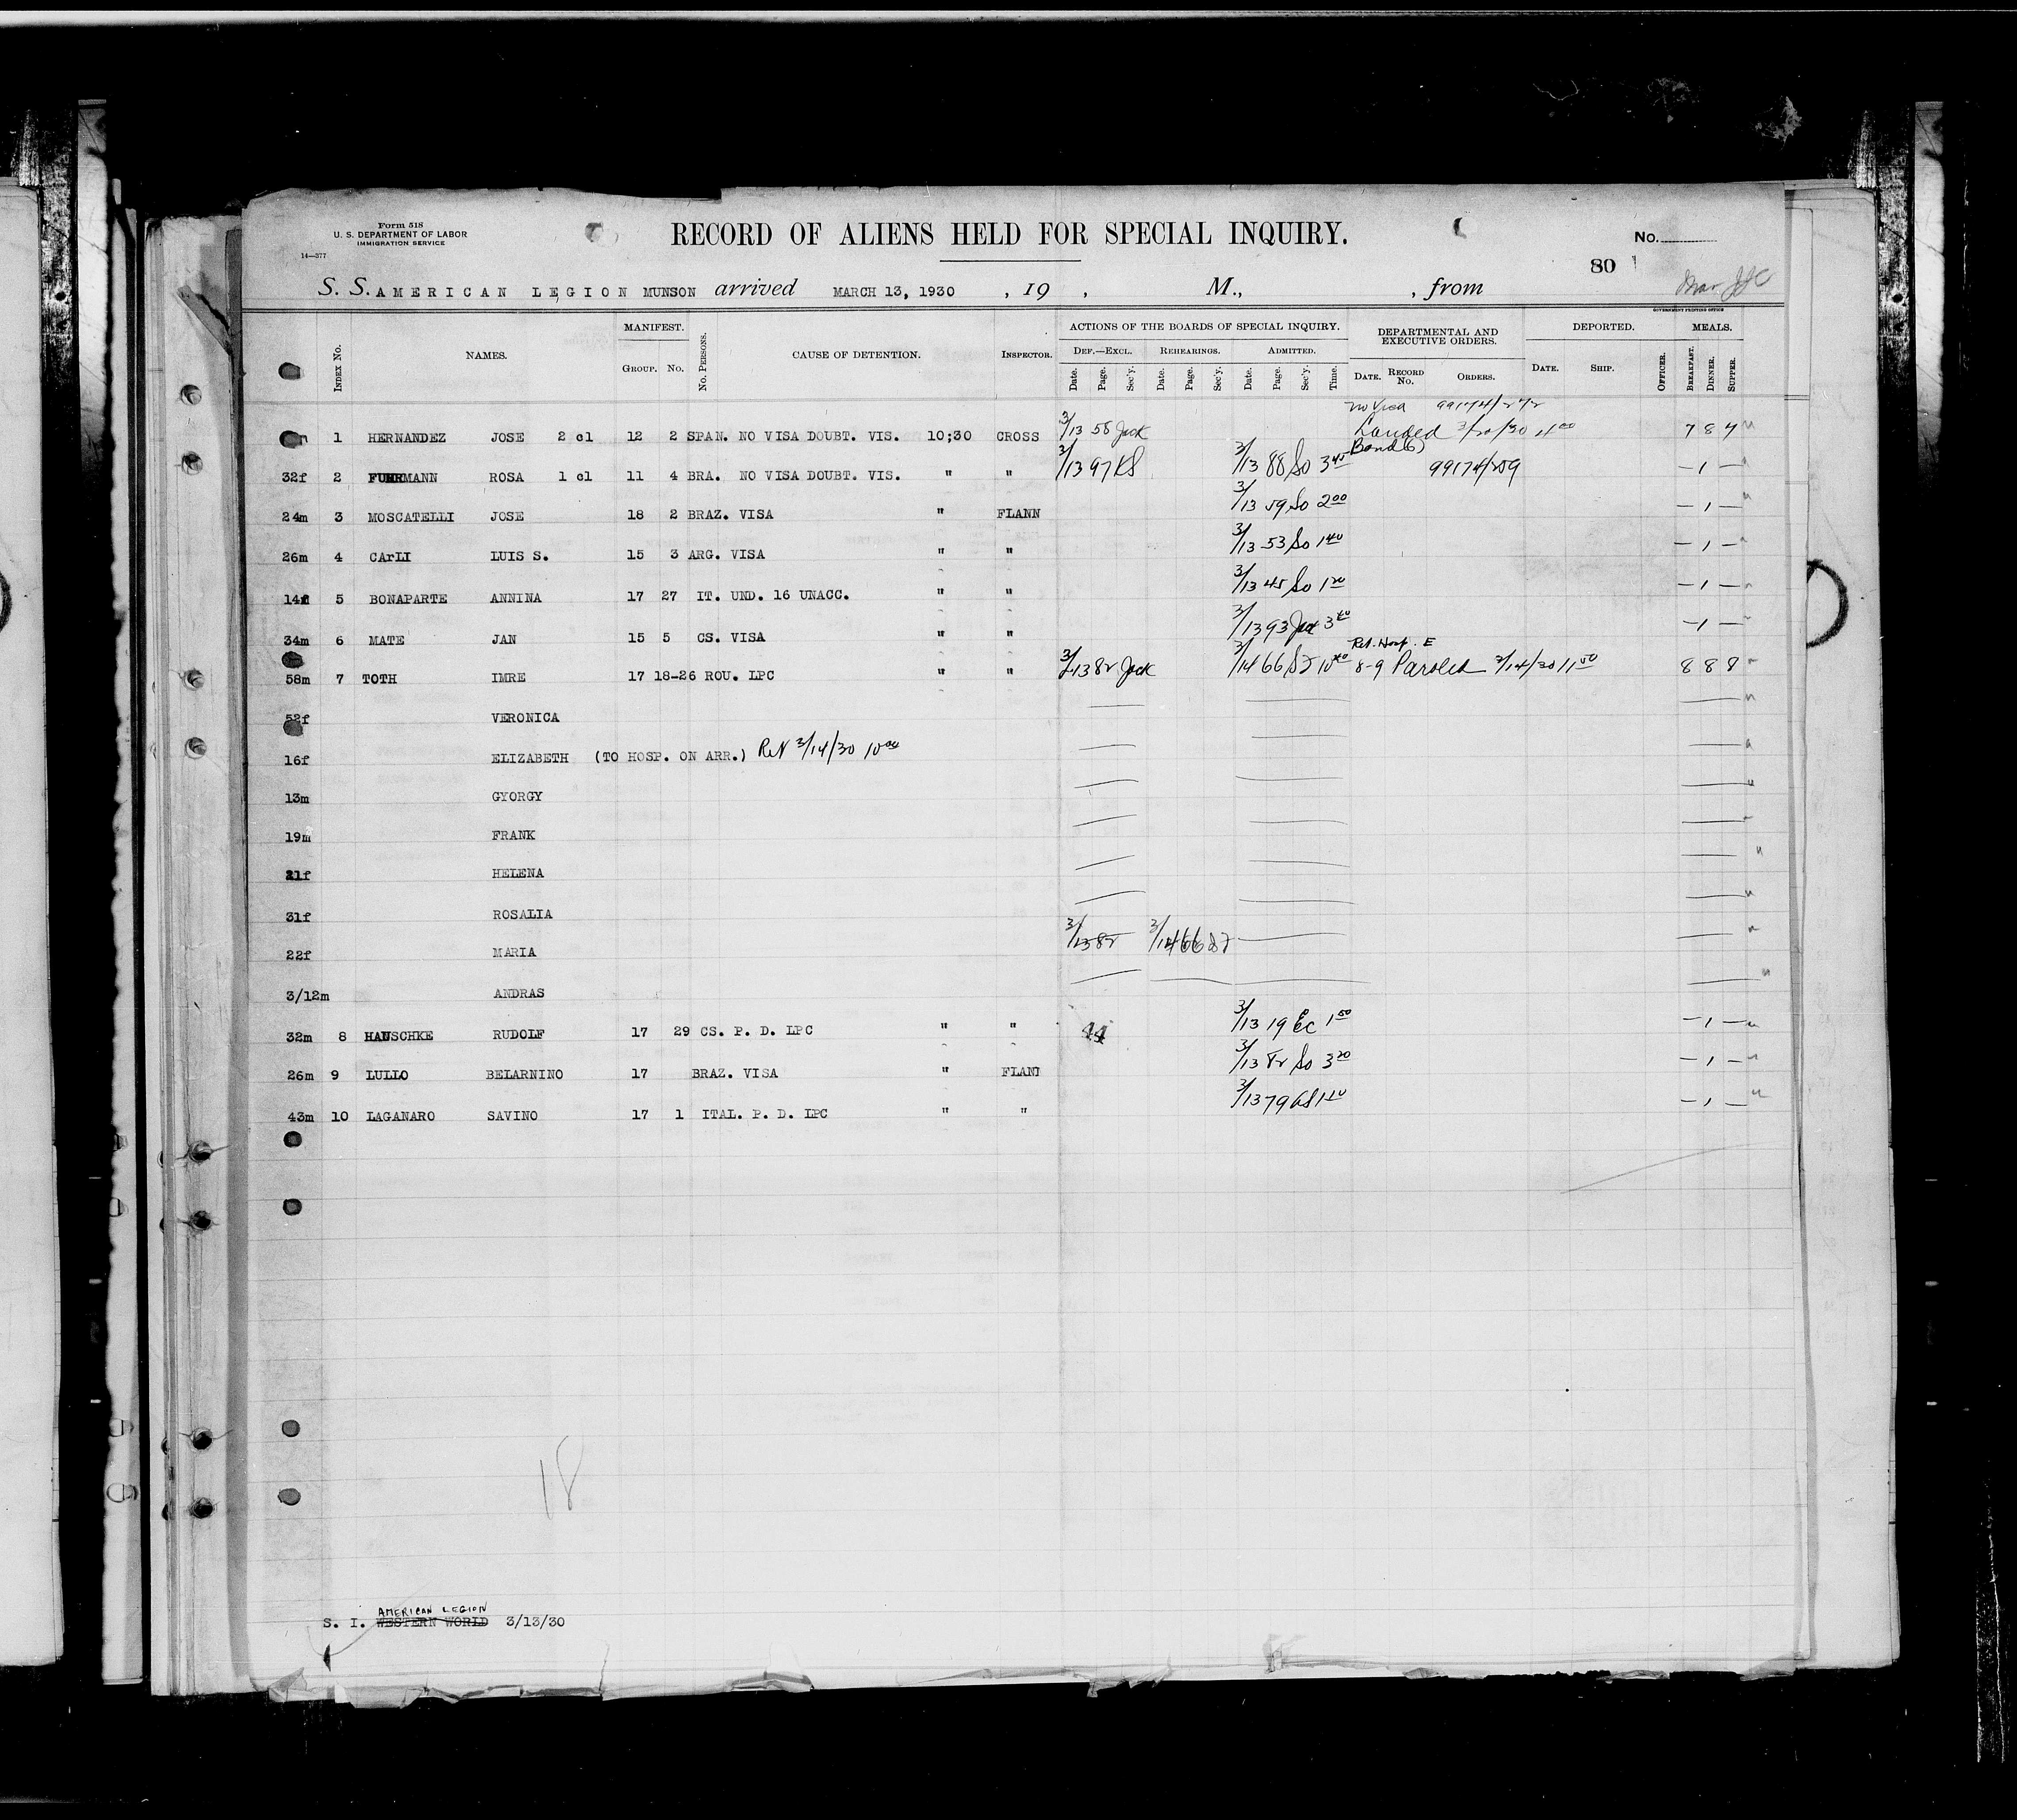 Form 518
U. S. DEPARTMENT OF LABOR
IMMIGRATION SERVICE
14—377
RECORD OF ALIENS HELD FOR SPECIAL INQUIRY.
No.
80
S. S. AMERICAN LEGION MUNSON arrived MARCH 13, 1930 , 19 , M., , from
GOVERNMENT PRINTING OFFICE
INDEX No. NAMES. MANIFEST. GROUP. No. No. PERSONS. CAUSE OF DETENTION. INSPECTOR. ACTIONS OF THE BOARDS OF SPECIAL INQUIRY. DEPARTMENTAL AND EXECUTIVE ORDERS. DEPORTED. MEALS.
DEF.—EXCL. REHEARINGS. ADMITTED.
Date. Page. Sec'y. Date. Page. Sec'y. Date. Page. Sec'y. Time. DATE. RECORD No. ORDERS. DATE. SHIP. OFFICER. BREAKFAST. DINNER. SUPPER.
no Visa 99174/272
1 HERNANDEZ JOSE 2 cl 12 2 SPAN. NO VISA DOUBT. VIS. 10;30 CROSS 3/13 58 Jack Landed 3/20/30 4 00 7 8 7
Bond (6)
32f 2 FUHRMANN ROSA 1 cl 11 4 BRA. NO VISA DOUBT. VIS. " " 3/13 97 KS 3/13 88 So 3 45 99174/259 — 1 —
24m 3 MOSCATELLI JOSE 18 2 BRAZ. VISA " FLANN 3/13 59 So 2 00 — 1 —
26m 4 CArLI LUIS S. 15 3 ARG. VISA " " 3/13 53 So 1 40 — 1 —
14f 5 BONAPARTE ANNINA 17 27 IT. UND. 16 UNACC. " " 3/13 45 So 1 20 — 1 —
34m 6 MATE JAN 15 5 CS. VISA " " 3/13 93 Jack 3 40 — 1 —
Rel. Hosp. E
58m 7 TOTH IMRE 17 18-26 ROU. LPC " " 3/13 82 Jack 3/14 66 10 40 8-9 Paroled 3/14/30 11 50 8 8 8
52f VERONICA
16f ELIZABETH (TO HOSP. ON ARR.) Rel 3/14/30 10 00
13m GYORGY
19m FRANK
21f HELENA
31f ROSALIA
22f MARIA 3/13 82 3/14 66
3/12m ANDRAS
32m 8 HAUSCHKE RUDOLF 17 29 CS. P. D. LPC " " 3/13 19 Ec 1 50 — 1 —
26m 9 LULLO BELARNINO 17 BRAZ. VISA " FLANN 3/13 82 So 3 20 — 1 —
43m 10 LAGANARO SAVINO 17 1 ITAL. P. D. LPC " " 3/13 79 — 1 —
18
AMERICAN LEGION
S. I. WESTERN WORLD 3/13/30